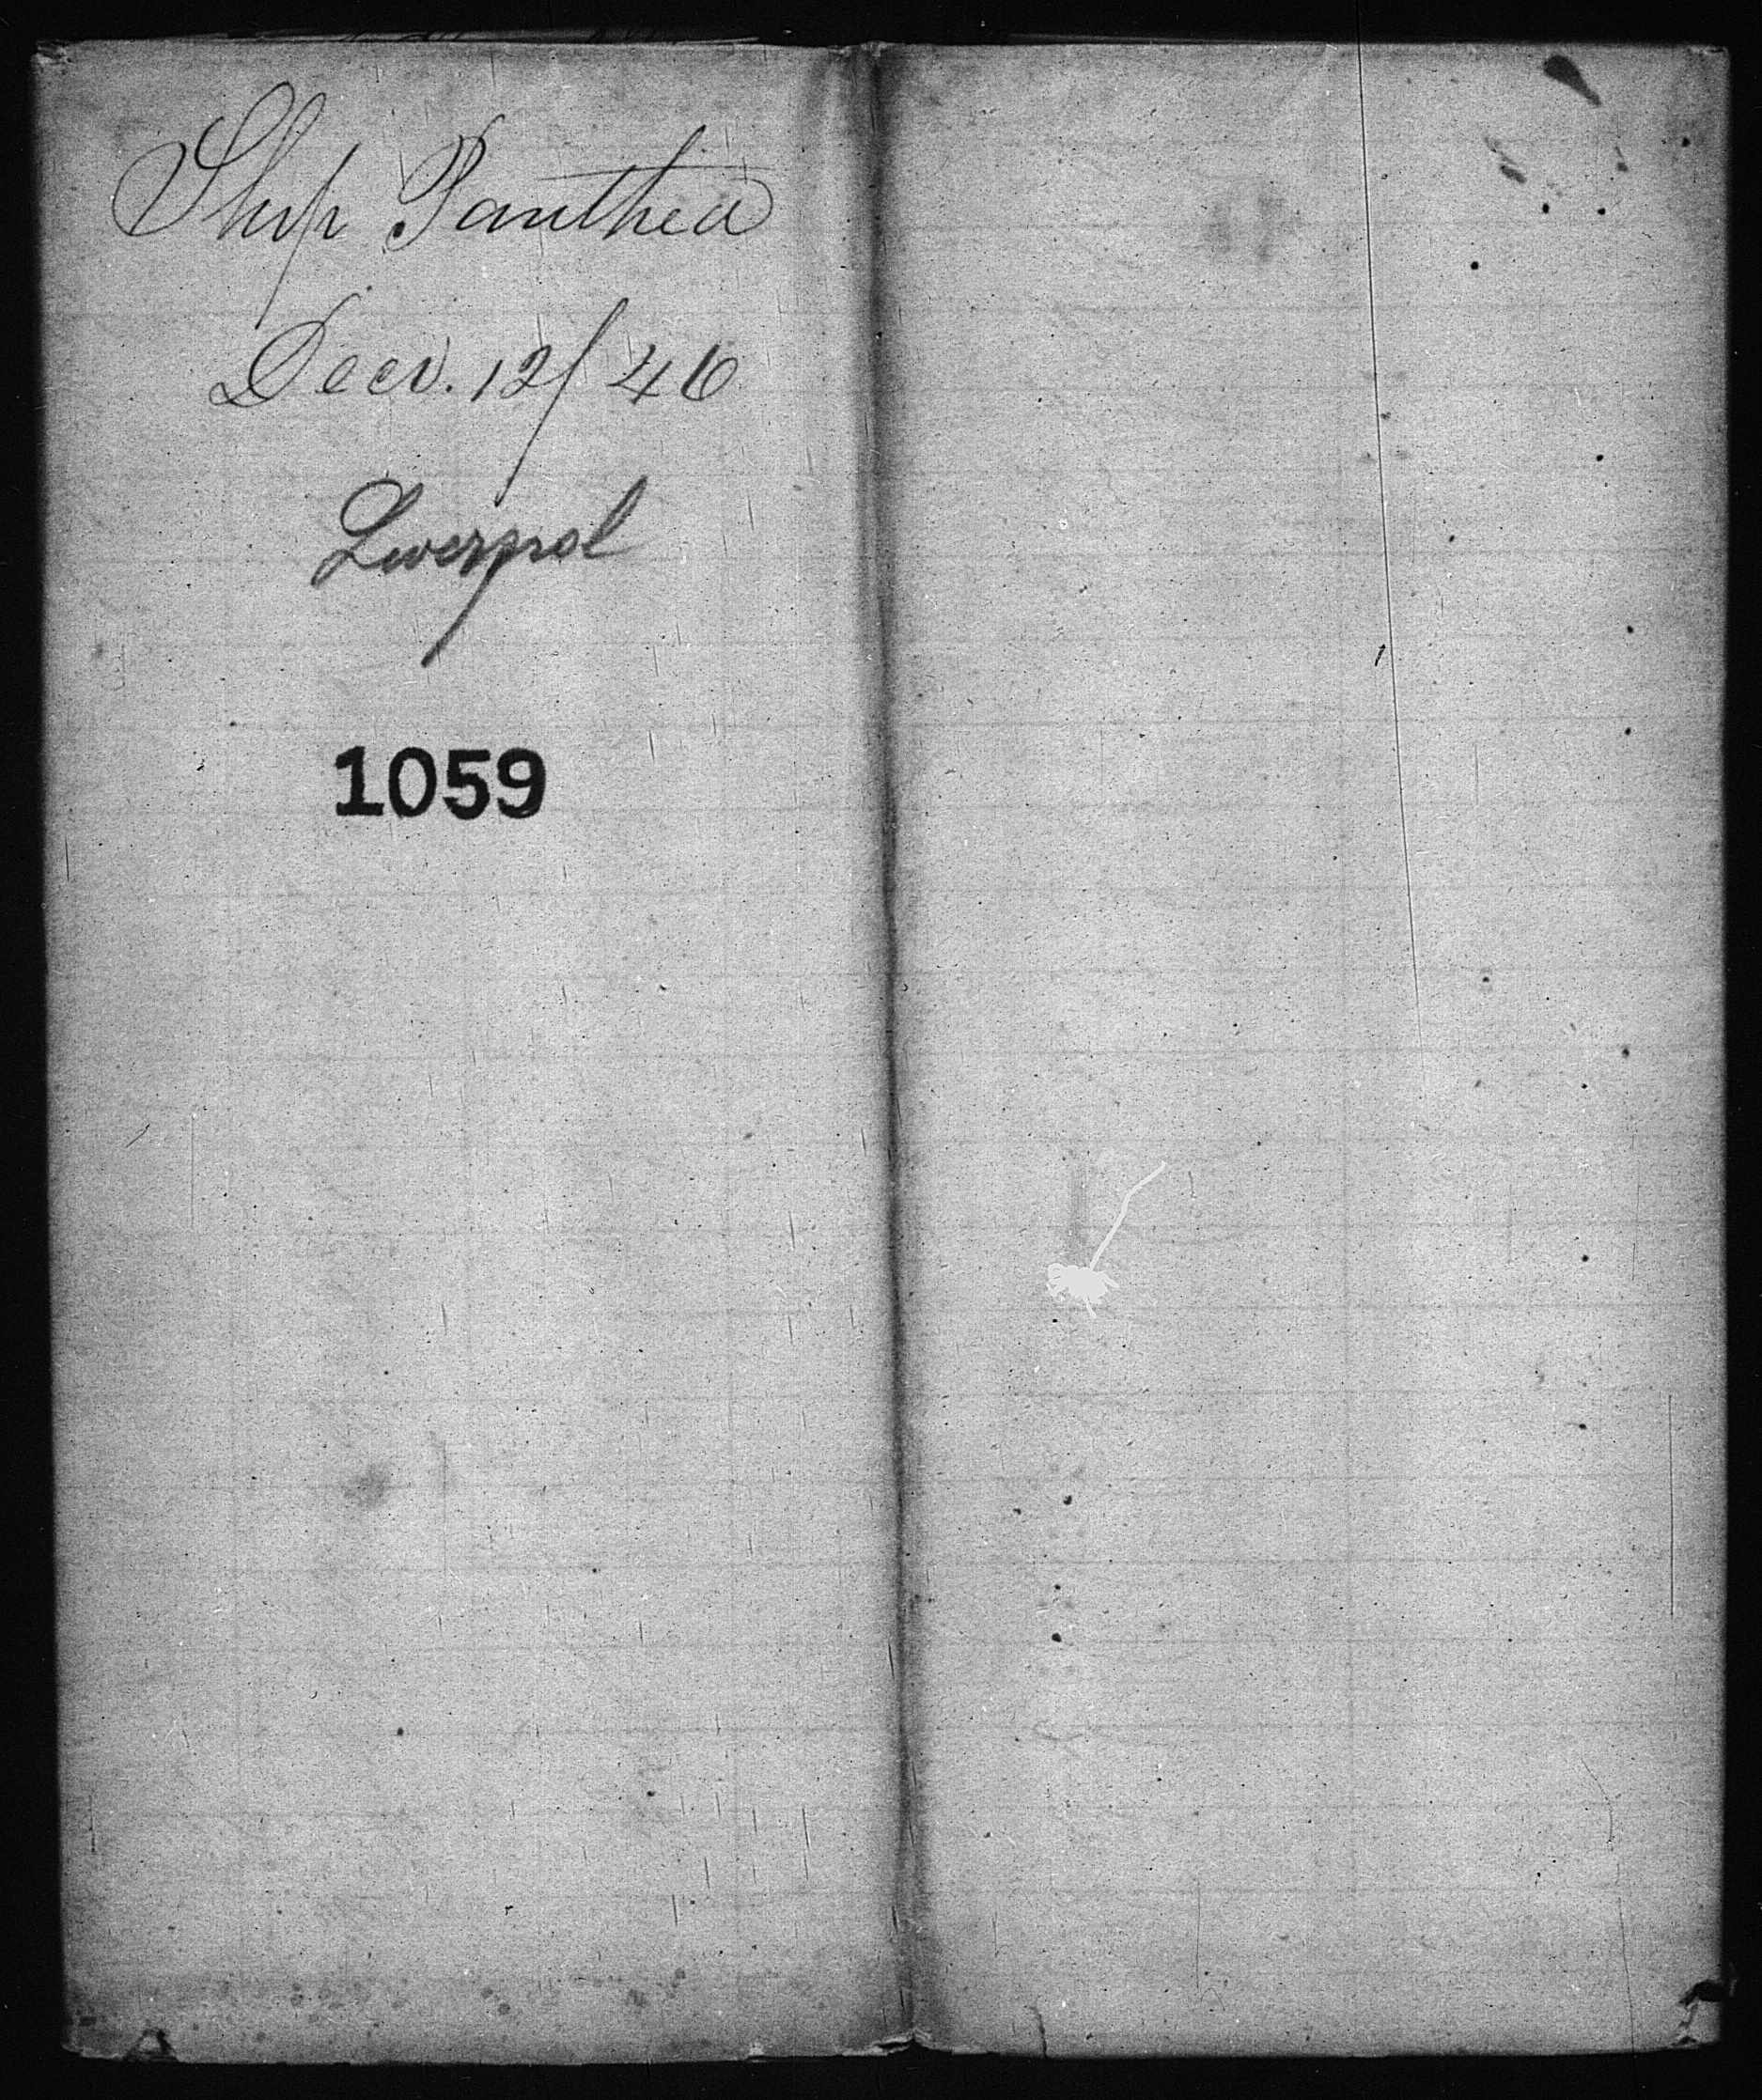 Ship Panthea
Decr. 12/46
Liverpool
1059